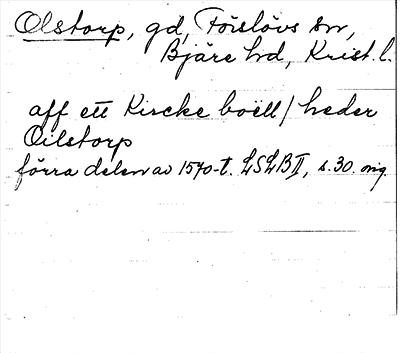 Olstorp, gd, Förslövs sn,
Bjäre hd, Krist. l.
aff ett Kircke boell / heder
Oilstorp
förra delen av 1570-t. LSLB II, s. 30. orig.